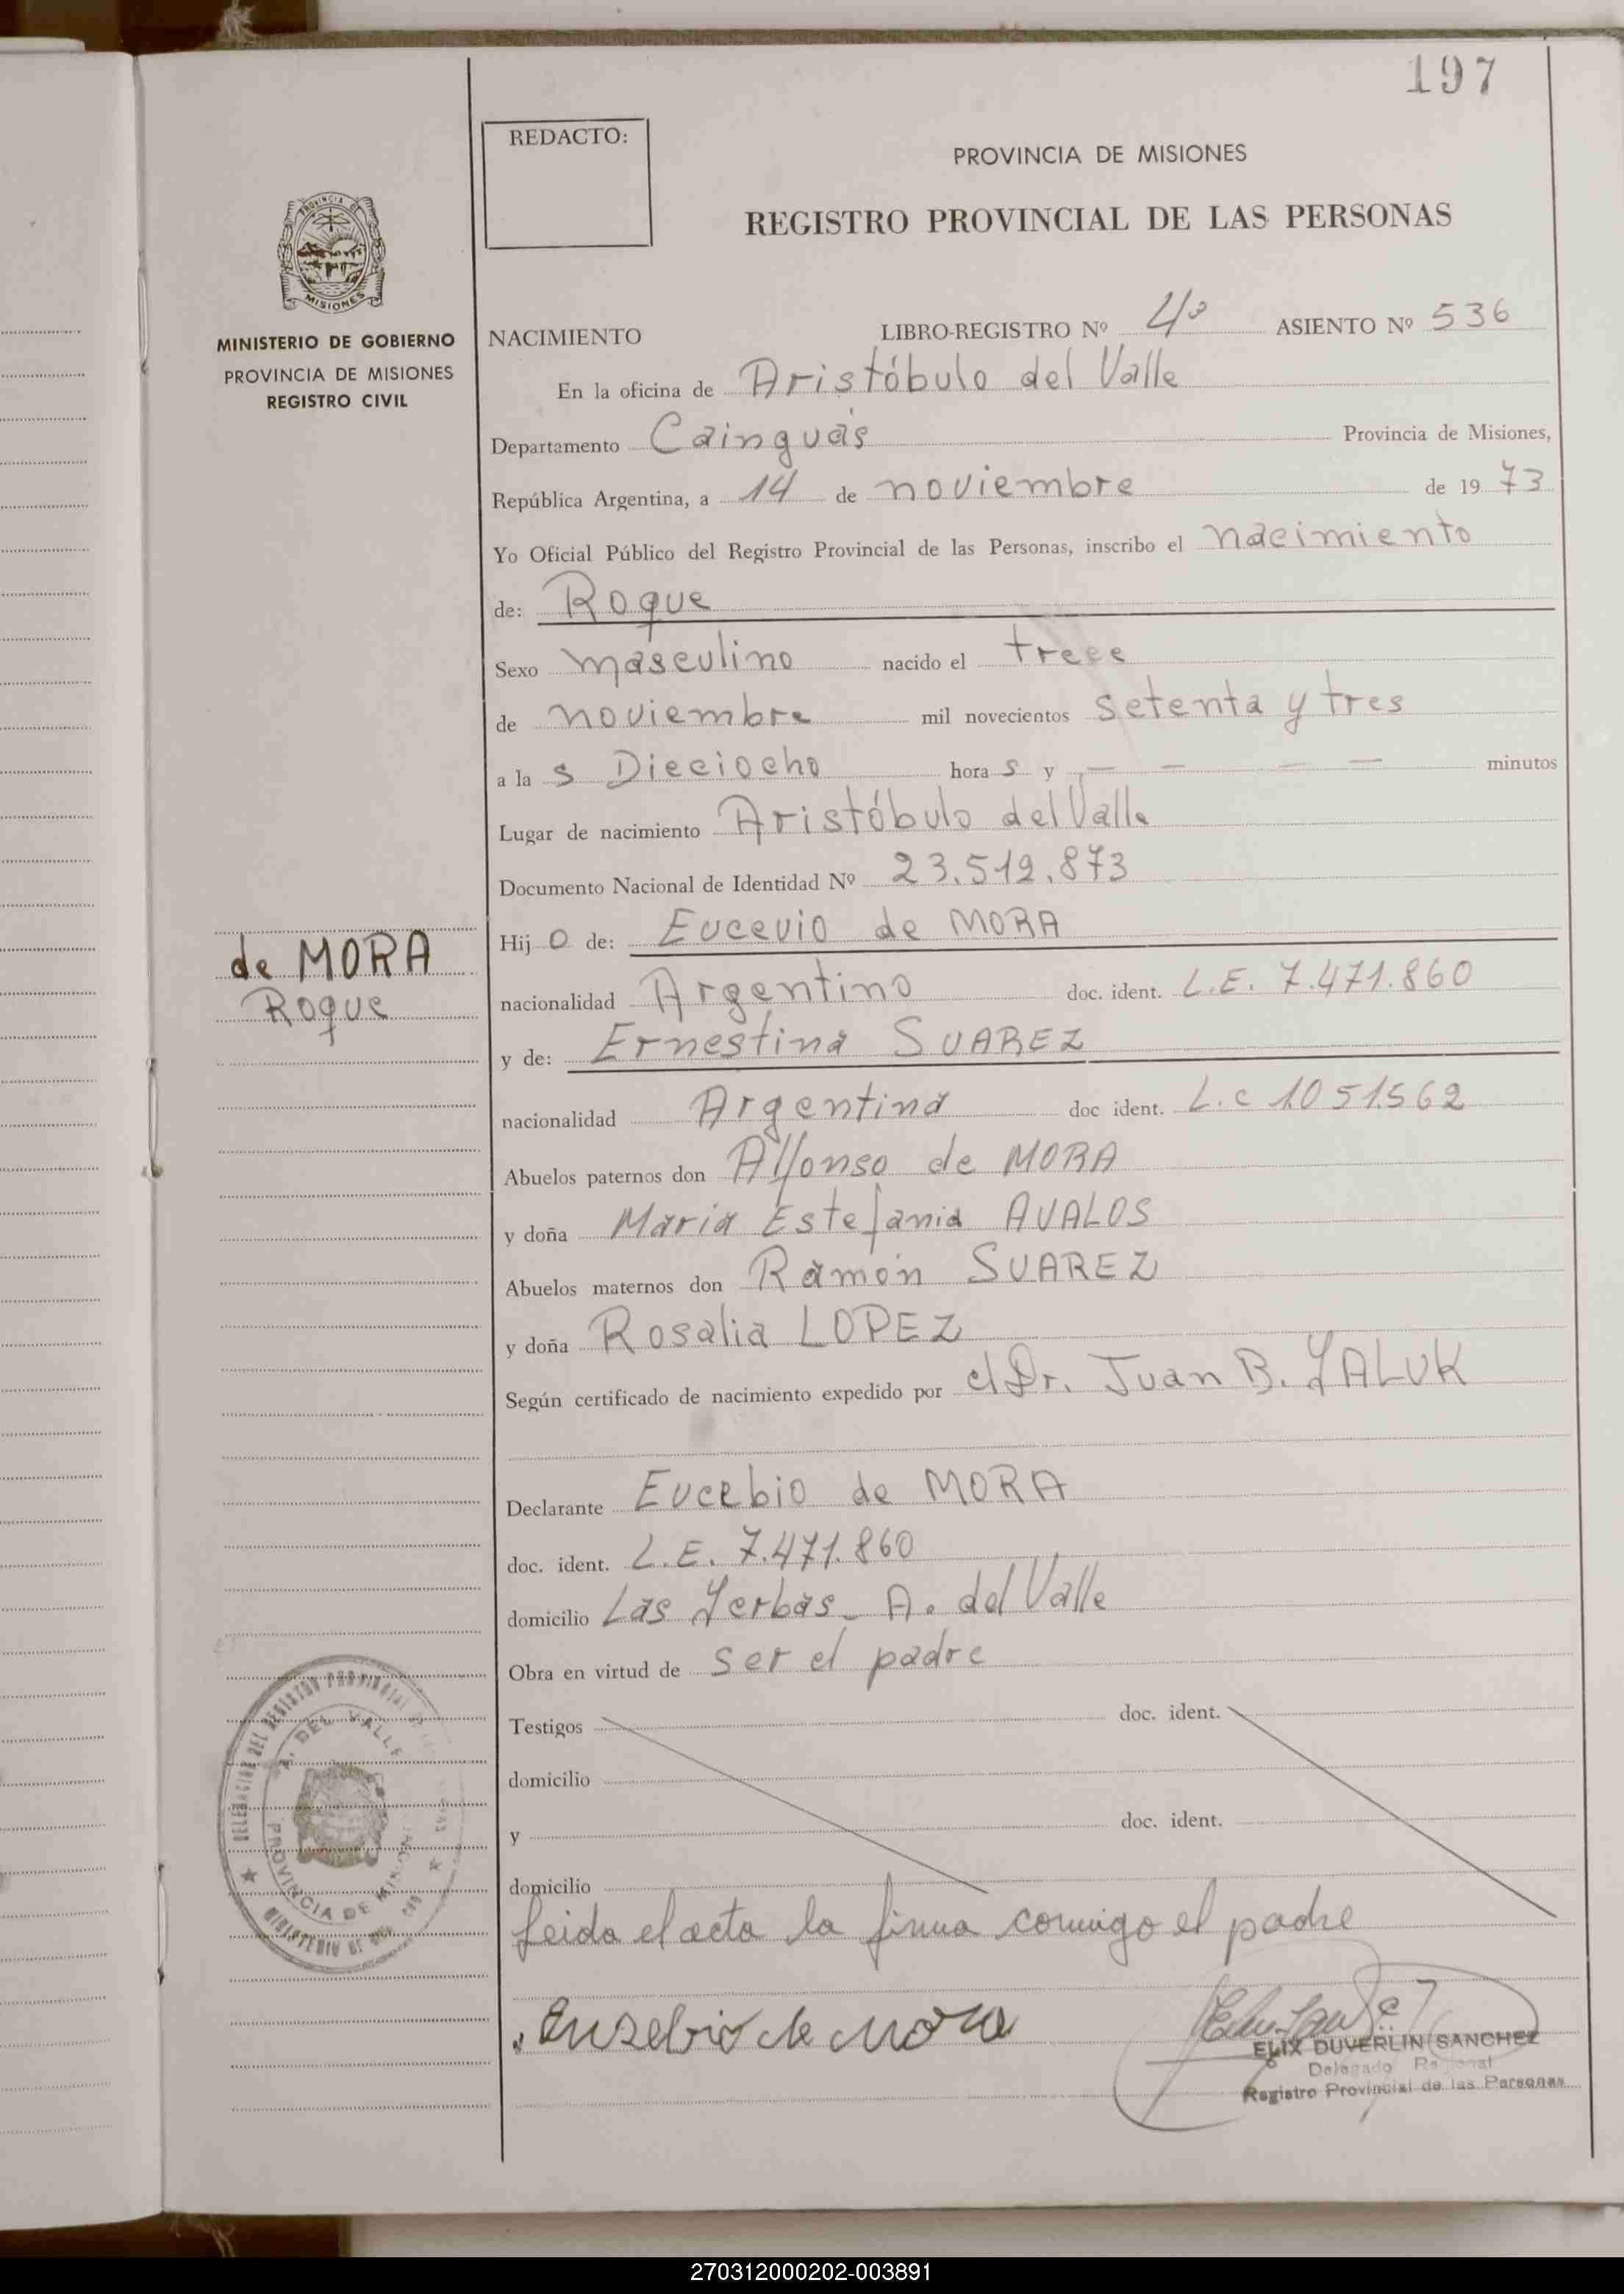 197
REDACTO:
PROVINCIA DE MISIONES
REGISTRO PROVINCIAL DE LAS PERSONAS
PROVINCIA DE
MISIONES
MINISTERIO DE GOBIERNO
PROVINCIA DE MISIONES
REGISTRO CIVIL
NACIMIENTO LIBRO-REGISTRO Nº 4º ASIENTO Nº 536
En la oficina de Aristóbulo del Valle
Departamento Cainguás Provincia de Misiones,
República Argentina, a 14 de noviembre de 19 73
Yo Oficial Público del Registro Provincial de las Personas, inscribo el nacimiento
de: Roque
Sexo masculino nacido el trece
de noviembre mil novecientos setenta y tres
a la s Dieciocho hora s y — — — — minutos
Lugar de nacimiento Aristóbulo del Valle
Documento Nacional de Identidad Nº 23.512.873
Hij o de: Eucevio de MORA
de MORA
Roque
nacionalidad Argentino doc. ident. L.E. 7.471.860
y de: Ernestina SUAREZ
nacionalidad Argentina doc ident. L.c 1.051.562
Abuelos paternos don Alfonso de MORA
y doña Maria Estefania AVALOS
Abuelos maternos don Ramón SUAREZ
y doña Rosalia LOPEZ
Según certificado de nacimiento expedido por el Dr. Juan B. YALUK
Declarante Eucebio de MORA
doc. ident. L.E. 7.471.860
domicilio Las Yerbas - A. del Valle
Obra en virtud de ser el padre
Testigos doc. ident.
domicilio
y doc. ident.
domicilio
Leida el acta la firma conmigo el padre
Eusebio de Mora
DELEGACION DEL REGISTRO PROVINCIAL
A. DEL VALLE
PROVINCIA DE MISIONES
MINISTERIO DE
ELIX DUVERLIN SANCHEZ
Delegado Regional
Registro Provincial de las Personas
270312000202-003891